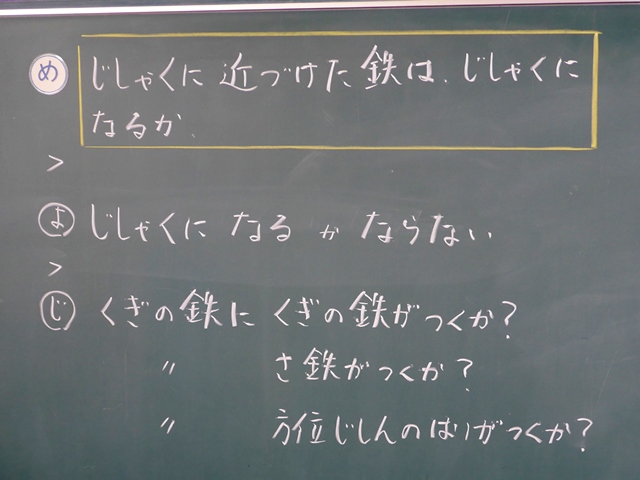 め じしゃくに近づけた鉄は、じしゃくに
なるか、
>
よ じしゃくに なる か ならない
>
じ くぎの鉄に くぎの鉄がつくか?
〃 さ鉄がつくか?
〃 方位じしんのはりがつくか?